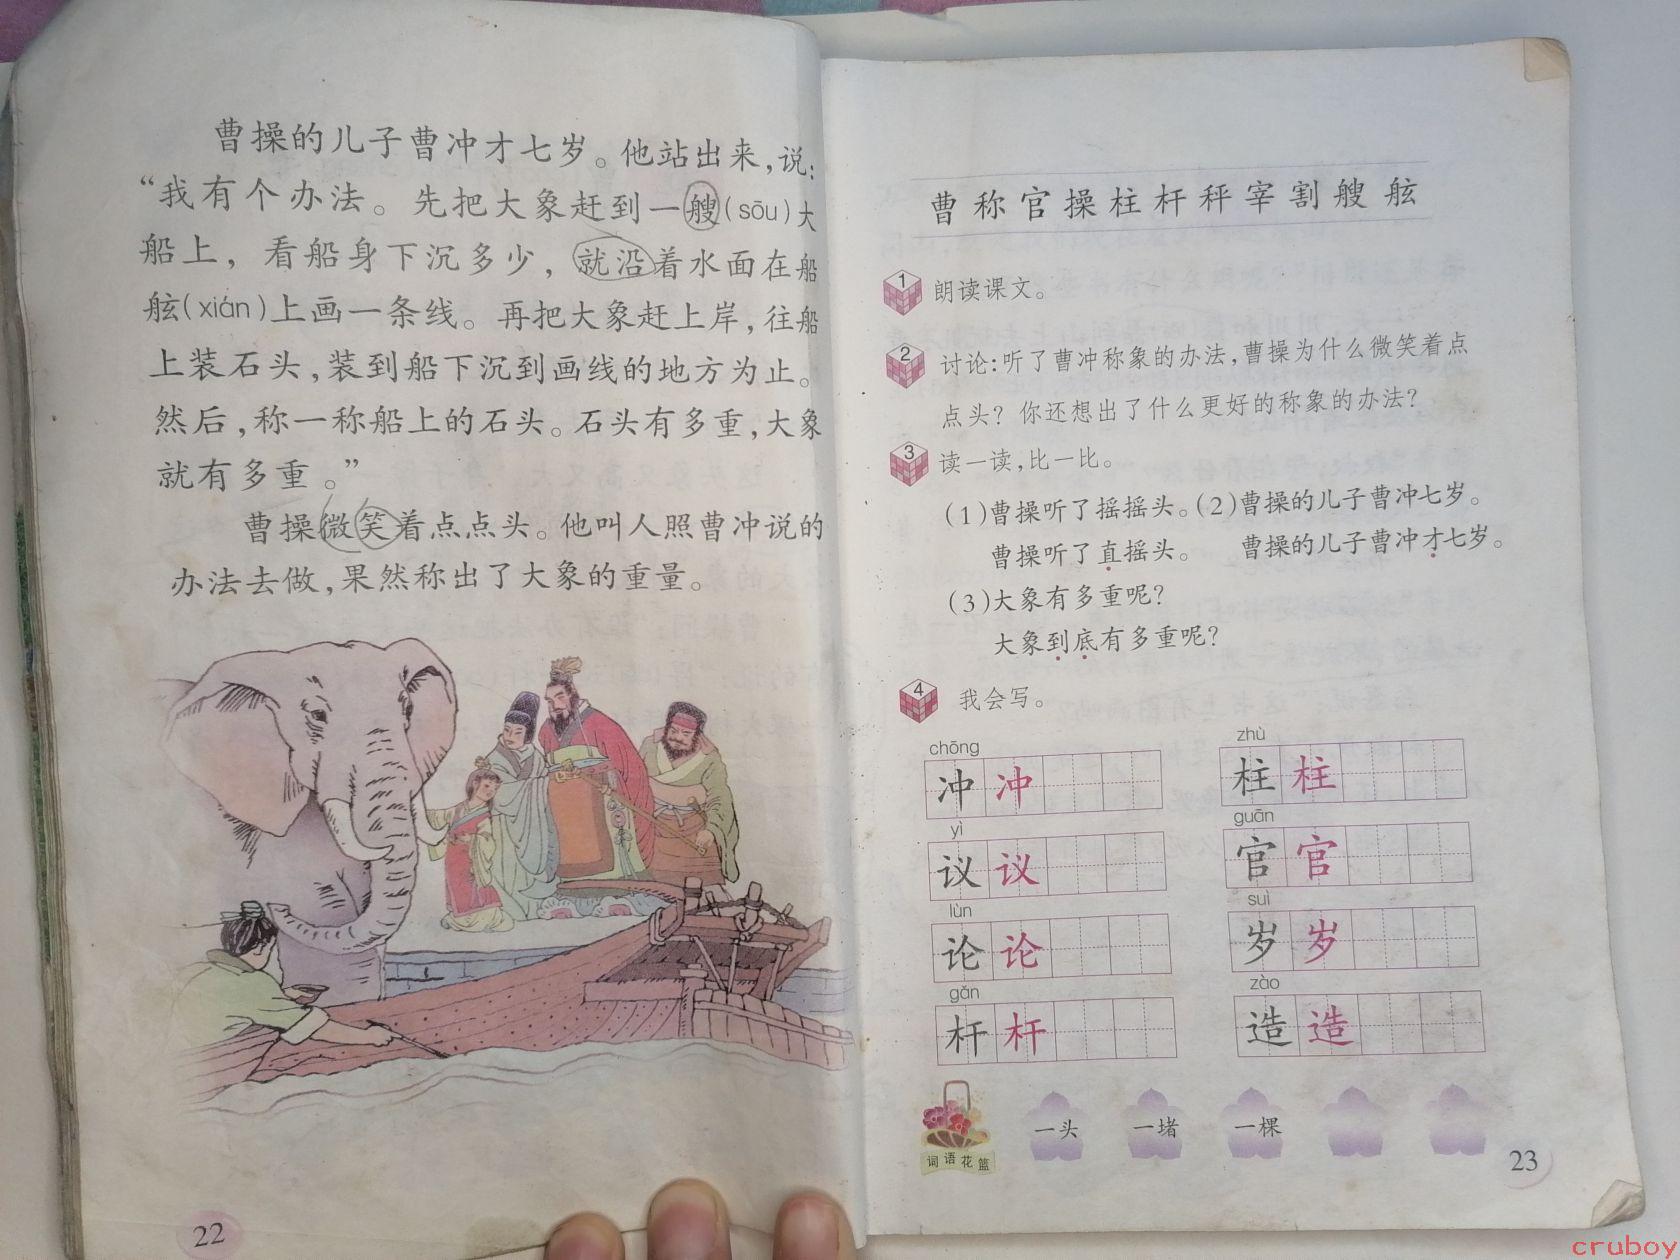 曹操的儿子曹冲才七岁。他站出来,说:
“我有个办法。先把大象赶到一艘(sōu)大
船上，看船身下沉多少，就沿着水面在船
舷(xián)上画一条线。再把大象赶上岸,往船
上装石头,装到船下沉到画线的地方为止。
然后,称一称船上的石头。石头有多重,大象
就有多重。”
曹操微笑着点点头。他叫人照曹冲说的
办法去做,果然称出了大象的重量。
22
曹称官操柱杆秤宰割艘舷
1 朗读课文。
2 讨论:听了曹冲称象的办法,曹操为什么微笑着点
点头？你还想出了什么更好的称象的办法？
3 读一读,比一比。
(1)曹操听了摇摇头。(2)曹操的儿子曹冲七岁。
曹操听了直摇头。 曹操的儿子曹冲才七岁。
(3)大象有多重呢？
大象到底有多重呢？
4 我会写。
chōng zhù
冲冲 柱柱
yì guān
议议 官官
lùn suì
论论 岁岁
gǎn zào
杆杆 造造
词语花篮 一头 一堵 一棵
23
cruboy